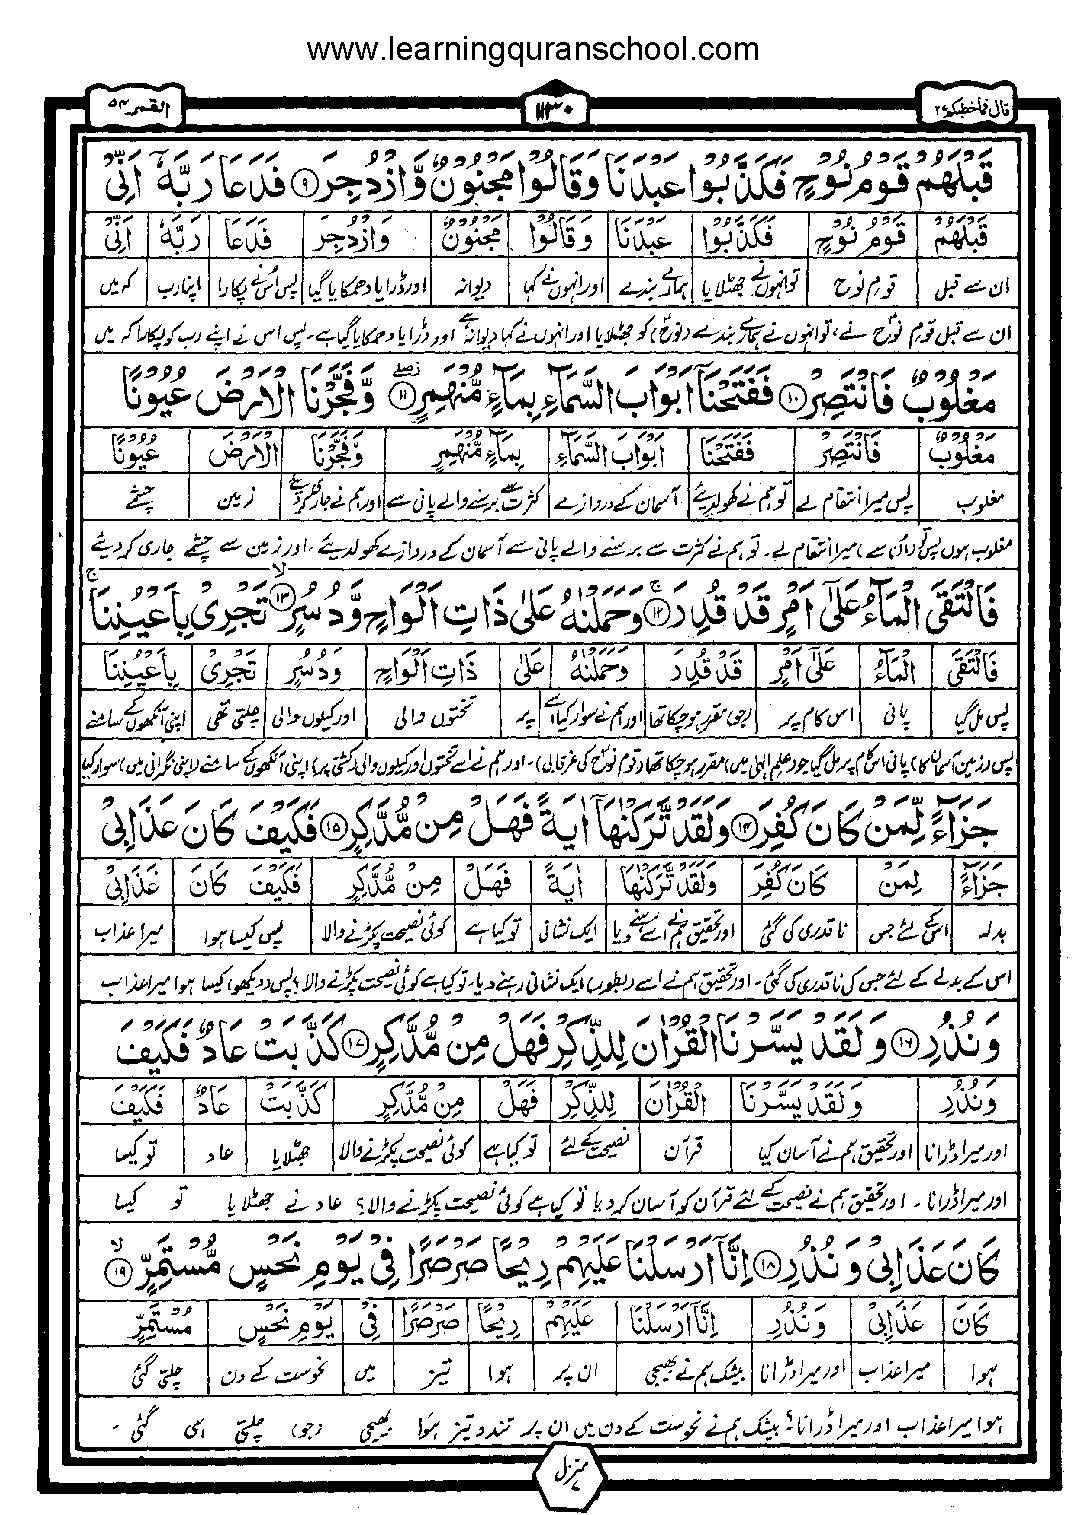 www.learningquranschool.com
القمر ۵۴
۱۱۳۰
قال فماخطبکم ۲۷
قَبْلَهُمْ قَوْمُ نُوْحٍ فَكَذَّبُوْا عَبْدَنَا وَقَالُوْا مَجْنُوْنٌ وَّازْدُجِرَ ۹ فَدَعَا رَبَّهٗۤ اَنِّیْ
قَبْلَهُمْ قَوْمُ نُوْحٍ فَكَذَّبُوْا عَبْدَنَا وَقَالُوْا مَجْنُوْنٌ وَازْدُجِرَ فَدَعَا رَبَّهٗ اَنِّیْ
ان سے قبل قوم نوح تو انہوں نے جھٹلایا ہمارے بندے اور انہوں نے کہا دیوانہ اور ڈرایا دھمکایا گیا پس اس نے پکارا اپنا رب کہ میں
ان سے قبل قوم نوح نے، تو انہوں نے ہمارے بندے (نوح) کو جھٹلایا اور انہوں نے کہا دیوانہ ہے اور ڈرایا دھمکایا گیا ہے۔ پس اس نے اپنے رب کو پکارا کہ میں
مَغْلُوْبٌ فَانْتَصِرْ ۱۰ فَفَتَحْنَاۤ اَبْوَابَ السَّمَآءِ بِمَآءٍ مُّنْهَمِرٍ ۱۱ وَّفَجَّرْنَا الْاَرْضَ عُیُوْنًا
مَغْلُوْبٌ فَانْتَصِرْ فَفَتَحْنَا اَبْوَابَ السَّمَآءِ بِمَآءٍ مُّنْهَمِرٍ وَّفَجَّرْنَا الْاَرْضَ عُیُوْنًا
مغلوب پس میرا انتقام لے تو ہم نے کھول دیئے آسمان کے دروازے کثرت سے برسنے والے پانی سے اور ہم نے جاری کر دیئے زمین چشمے
مغلوب ہوں پس تو (ان سے) میرا انتقام لے۔ تو ہم نے کثرت سے برسنے والے پانی سے آسمان کے دروازے کھول دیئے۔ اور زمین سے چشمے جاری کر دیئے
فَالْتَقَی الْمَآءُ عَلٰۤی اَمْرٍ قَدْ قُدِرَ ۱۲ وَحَمَلْنٰهُ عَلٰی ذَاتِ اَلْوَاحٍ وَّدُسُرٍ ۱۳ تَجْرِیْ بِاَعْیُنِنَا
فَالْتَقَی الْمَآءُ عَلٰۤی اَمْرٍ قَدْ قُدِرَ وَحَمَلْنٰهُ عَلٰی ذَاتِ اَلْوَاحٍ وَدُسُرٍ تَجْرِیْ بِاَعْیُنِنَا
پس مل گیا پانی اس کام پر (جو) مقرر ہو چکا تھا اور ہم نے سوار کیا اسے پر تختوں والی اور کیلوں والی چلتی تھی اپنی آنکھوں کے سامنے
پس (زمین آسمان کا) پانی اس کام پر مل گیا جو (علم الہی میں) مقرر ہو چکا تھا (قوم نوح کی غرقابی)۔ اور ہم نے اسے تختوں اور کیلوں والی (کشتی) پر اپنی آنکھوں کے سامنے (اپنی نگرانی میں) سوار کیا
جَزَآءً لِّمَنْ كَانَ كُفِرَ ۱۴ وَلَقَدْ تَّرَكْنٰهَاۤ اٰیَةً فَهَلْ مِنْ مُّدَّكِرٍ ۱۵ فَكَیْفَ كَانَ عَذَابِیْ
جَزَآءً لِّمَنْ كَانَ كُفِرَ وَلَقَدْ تَّرَكْنٰهَا اٰیَةً فَهَلْ مِنْ مُّدَّكِرٍ فَكَیْفَ كَانَ عَذَابِیْ
بدلہ اس کے لئے جس نا قدری کی گئی اور تحقیق ہم نے اسے رہنے دیا ایک نشانی تو کیا ہے کوئی نصیحت پکڑنے والا پس کیسا ہوا میرا عذاب
اس کے بدلے کے لئے جس کی نا قدری کی گئی۔ اور تحقیق ہم نے اسے (بطور) ایک نشانی رہنے دیا۔ تو کیا ہے کوئی نصیحت پکڑنے والا؟ پس (دیکھو) کیسا ہوا میرا عذاب
وَنُذُرِ ۱۶ وَلَقَدْ یَسَّرْنَا الْقُرْاٰنَ لِلذِّكْرِ فَهَلْ مِنْ مُّدَّكِرٍ ۱۷ كَذَّبَتْ عَادٌ فَكَیْفَ
وَنُذُرِ وَلَقَدْ یَسَّرْنَا الْقُرْاٰنَ لِلذِّكْرِ فَهَلْ مِنْ مُّدَّكِرٍ كَذَّبَتْ عَادٌ فَكَیْفَ
اور میرا ڈرانا اور تحقیق ہم نے آسان کیا قرآن نصیحت کے لئے تو کیا ہے کوئی نصیحت پکڑنے والا جھٹلایا عاد تو کیسا
اور میرا ڈرانا۔ اور تحقیق ہم نے نصیحت کے لئے قرآن کو آسان کر دیا تو کیا ہے کوئی نصیحت پکڑنے والا؟ عاد نے جھٹلایا تو کیسا
كَانَ عَذَابِیْ وَنُذُرِ ۱۸ اِنَّاۤ اَرْسَلْنَا عَلَیْهِمْ رِیْحًا صَرْصَرًا فِیْ یَوْمِ نَحْسٍ مُّسْتَمِرٍّ ۱۹
كَانَ عَذَابِیْ وَنُذُرِ اِنَّاۤ اَرْسَلْنَا عَلَیْهِمْ رِیْحًا صَرْصَرًا فِیْ یَوْمِ نَحْسٍ مُّسْتَمِرٍّ
ہوا میرا عذاب اور میرا ڈرانا بیشک ہم نے بھیجی ان پر ہوا تیز میں نحوست کے دن چلتی گئی
ہوا میرا عذاب اور میرا ڈرانا؟ بیشک ہم نے نحوست کے دن میں ان پر تند و تیز ہوا بھیجی (جو) چلتی ہی گئی۔
منزل ۷